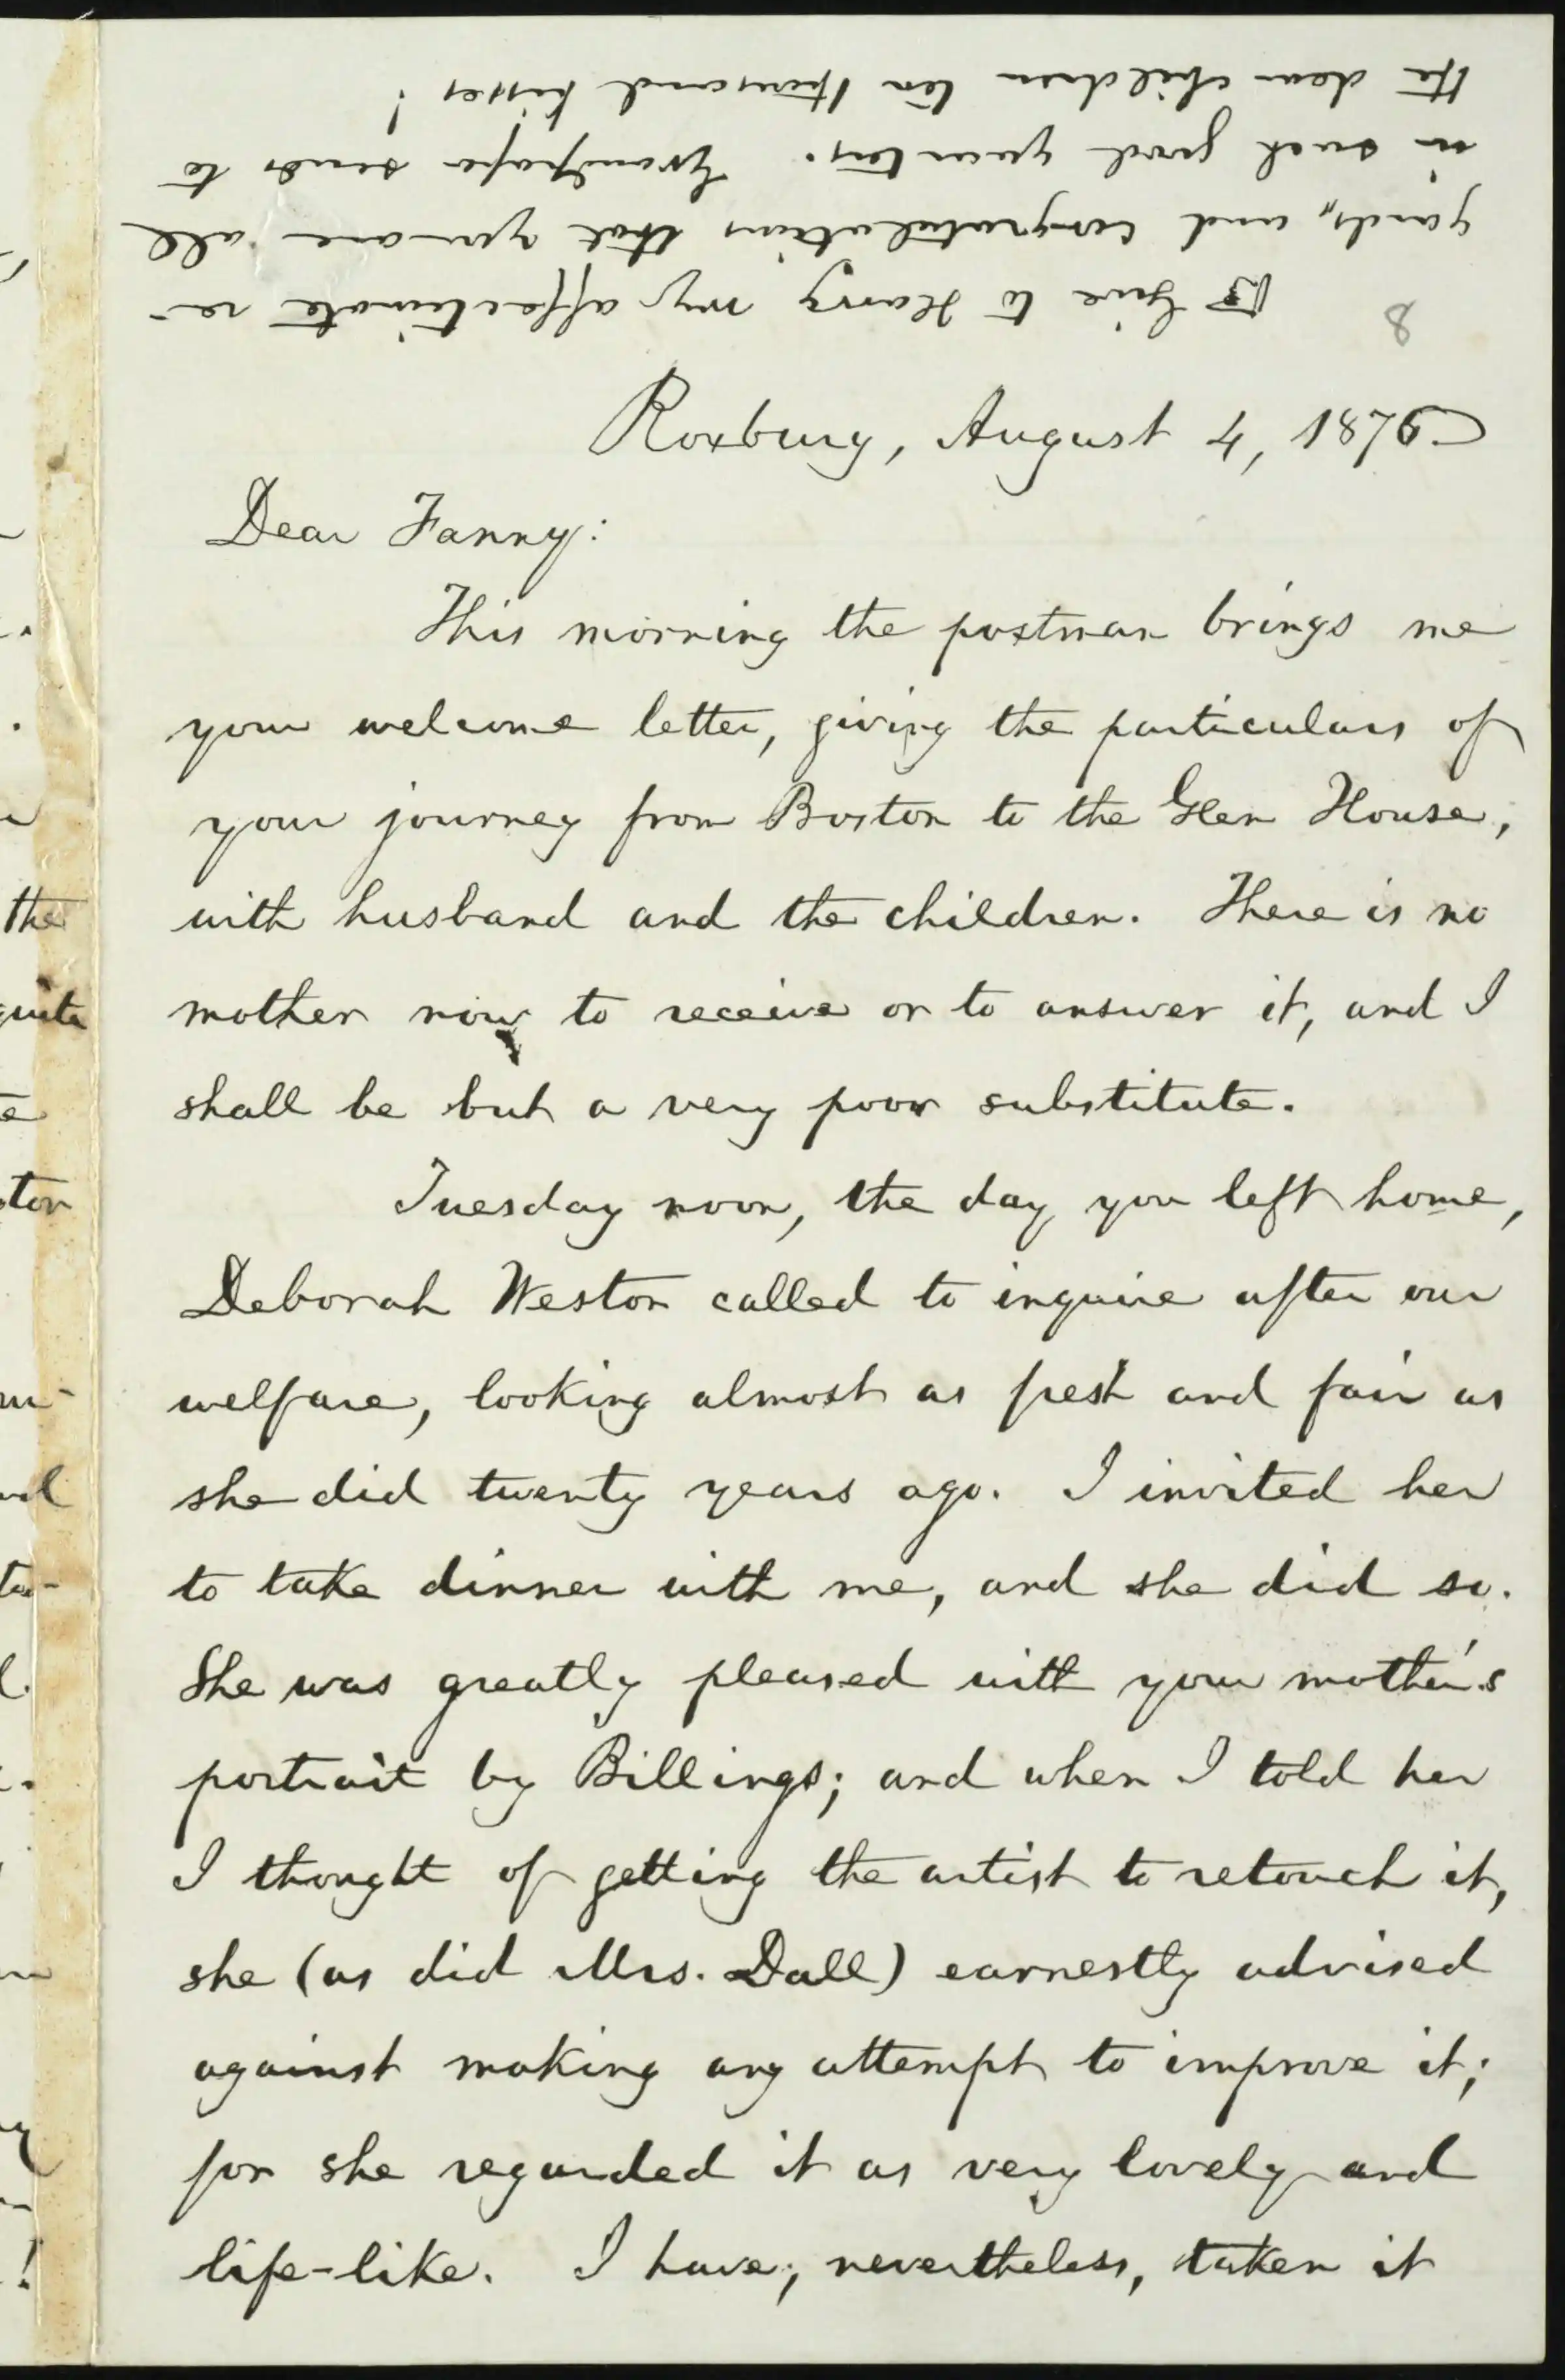 ☞ Give to Harry my affectionate re-
gards, and congratulations that you are all
in such good quarters. Grandpapa sends to
the dear children ten thousand kisses!
8
Roxbury, August 4, 1876.
Dear Fanny:
This morning the postman brings me
your welcome letter, giving the particulars of
your journey from Boston to the Glen House,
with husband and the children. There is no
mother now to receive or to answer it, and I
shall be but a very poor substitute.
Tuesday noon, the day you left home,
Deborah Weston called to inquire after our
welfare, looking almost as fresh and fair as
she did twenty years ago. I invited her
to take dinner with me, and she did so.
She was greatly pleased with your mother's
portrait by Billings; and when I told her
I thought of getting the artist to retouch it,
she (as did Mrs. Dall) earnestly advised
against making any attempt to improve it;
for she regarded it as very lovely and
life-like. I have, nevertheless, taken it
the